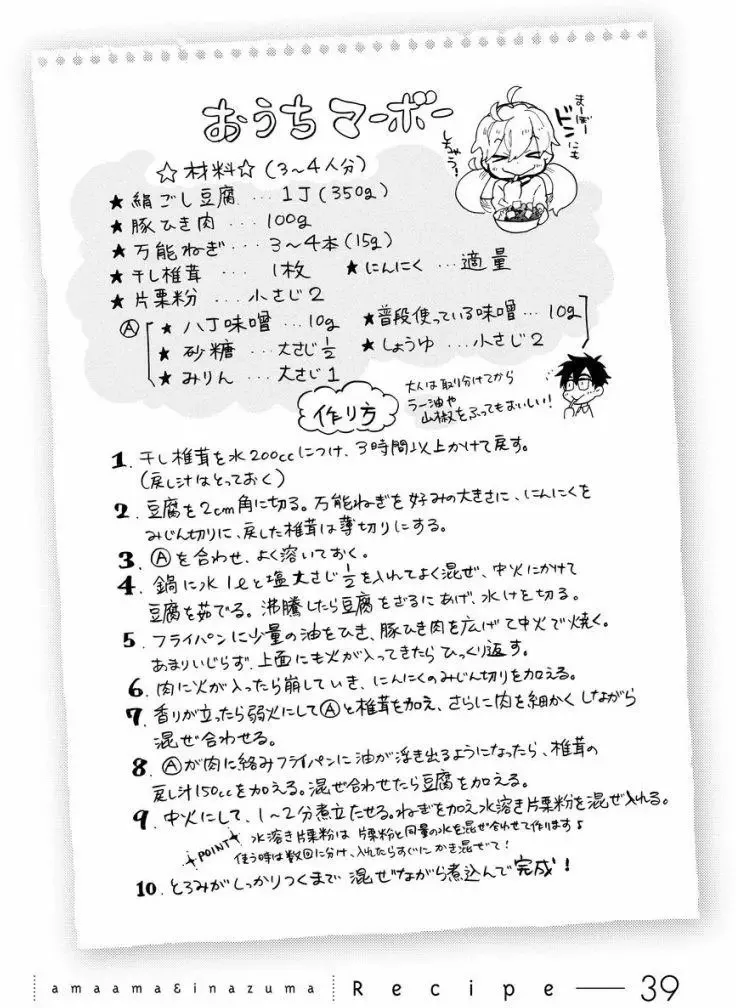 おうちマーボー
まーぼー
ドンにも
しちゃう!
☆材料☆(3〜4人分)
★絹ごし豆腐…1丁(350g)
★豚ひき肉…100g
★万能ねぎ…3〜4本(15g)
★干し椎茸…1枚 ★にんにく…適量
★片栗粉…小さじ2
Ⓐ ★八丁味噌…10g ★普段使っている味噌…10g
★砂糖…大さじ1/2 ★しょうゆ…小さじ2
★みりん…大さじ1
大人は取り分けてから
ラー油や
山椒をふってもおいしい!
作り方
1.干し椎茸を水200ccにつけ、3時間以上かけて戻す。
(戻し汁はとっておく)
2.豆腐を2cm角に切る。万能ねぎを好みの大きさに、にんにくを
みじん切りに、戻した椎茸は薄切りにする。
3.Ⓐを合わせ、よく溶いておく。
4.鍋に水1ℓと塩大さじ1/2を入れてよく混ぜ、中火にかけて
豆腐を茹でる。沸騰したら豆腐をざるにあげ、水けを切る。
5.フライパンに少量の油をひき、豚ひき肉を広げて中火で焼く。
あまりいじらず、上面にも火が入ってきたらひっくり返す。
6.肉に火が入ったら崩していき、にんにくのみじん切りを加える。
7.香りが立ったら弱火にしてⒶと椎茸を加え、さらに肉を細かくしながら
混ぜ合わせる。
8.Ⓐが肉に絡みフライパンに油が浮き出るようになったら、椎茸の
戻し汁150ccを加える。混ぜ合わせたら豆腐を加える。
9.中火にして、1〜2分煮立たせる。ねぎを加え水溶き片栗粉を混ぜ入れる。
POINT 水溶き片栗粉は片栗粉と同量の水を混ぜ合わせて作ります♪
使う時は数回に分け、入れたらすぐにかき混ぜて!
10.とろみがしっかりつくまで混ぜながら煮込んで完成!
amaama&inazuma Recipe — 39